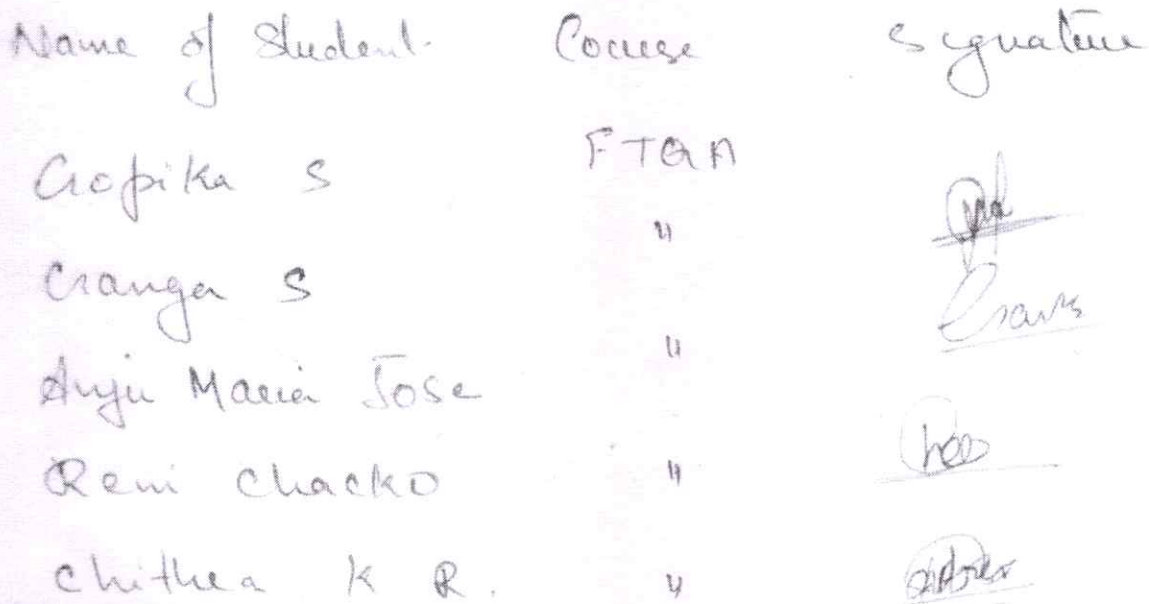 Name of Student Course Signature
Gopika S FTQA
Ganga S "
Anju Maria Jose "
Reni Chacko "
Chithra K R. "